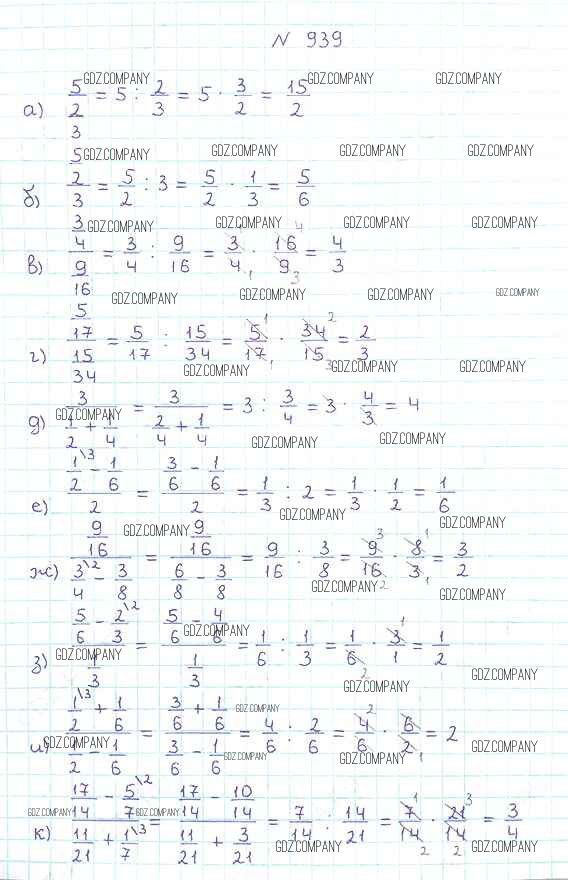 N 939
GDZ.COMPANY GDZ.COMPANY GDZ.COMPANY
а) 5/(2/3) = 5 : 2/3 = 5 · 3/2 = 15/2
GDZ.COMPANY GDZ.COMPANY GDZ.COMPANY GDZ.COMPANY
б) (5/2)/3 = 5/2 : 3 = 5/2 · 1/3 = 5/6
GDZ.COMPANY GDZ.COMPANY GDZ.COMPANY GDZ.COMPANY
в) (3/4)/(9/16) = 3/4 : 9/16 = 3/4 · 16/9 = 4/3
GDZ.COMPANY GDZ.COMPANY GDZ.COMPANY GDZ.COMPANY
г) (5/17)/(15/34) = 5/17 : 15/34 = 5/17 · 34/15 = 2/3
GDZ.COMPANY GDZ.COMPANY GDZ.COMPANY
д) 3/(1/2 + 1/4) = 3/(2/4 + 1/4) = 3 : 3/4 = 3 · 4/3 = 4
GDZ.COMPANY GDZ.COMPANY GDZ.COMPANY
е) (1/2\3 - 1/6)/2 = (3/6 - 1/6)/2 = 1/3 : 2 = 1/3 · 1/2 = 1/6
GDZ.COMPANY GDZ.COMPANY GDZ.COMPANY
ж) (9/16)/(3/4\2 - 3/8) = (9/16)/(6/8 - 3/8) = 9/16 : 3/8 = 9/16 · 8/3 = 3/2
GDZ.COMPANY GDZ.COMPANY GDZ.COMPANY
з) (5/6 - 2/3\2)/(1/3) = (5/6 - 4/6)/(1/3) = 1/6 : 1/3 = 1/6 · 3/1 = 1/2
GDZ.COMPANY GDZ.COMPANY GDZ.COMPANY
и) (1/2\3 + 1/6)/(1/2 - 1/6) = (3/6 + 1/6)/(3/6 - 1/6) = 4/6 : 2/6 = 4/6 · 6/2 = 2
GDZ.COMPANY GDZ.COMPANY GDZ.COMPANY GDZ.COMPANY GDZ.COMPANY
к) (17/14 - 5/7\2)/(11/21 + 1/7\3) = (17/14 - 10/14)/(11/21 + 3/21) = 7/14 : 14/21 = 7/14 · 21/14 = 3/4
GDZ.COMPANY GDZ.COMPANY GDZ.COMPANY GDZ.COMPANY